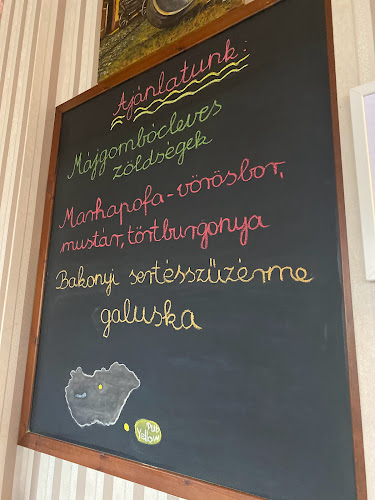 Ajánlatunk:
Májgombócleves
zöldségek
Marhapofa-vörösbor,
mustár, törtburgonya
Bakonyi sertésszűzérme
galuska
Pub
Yellow